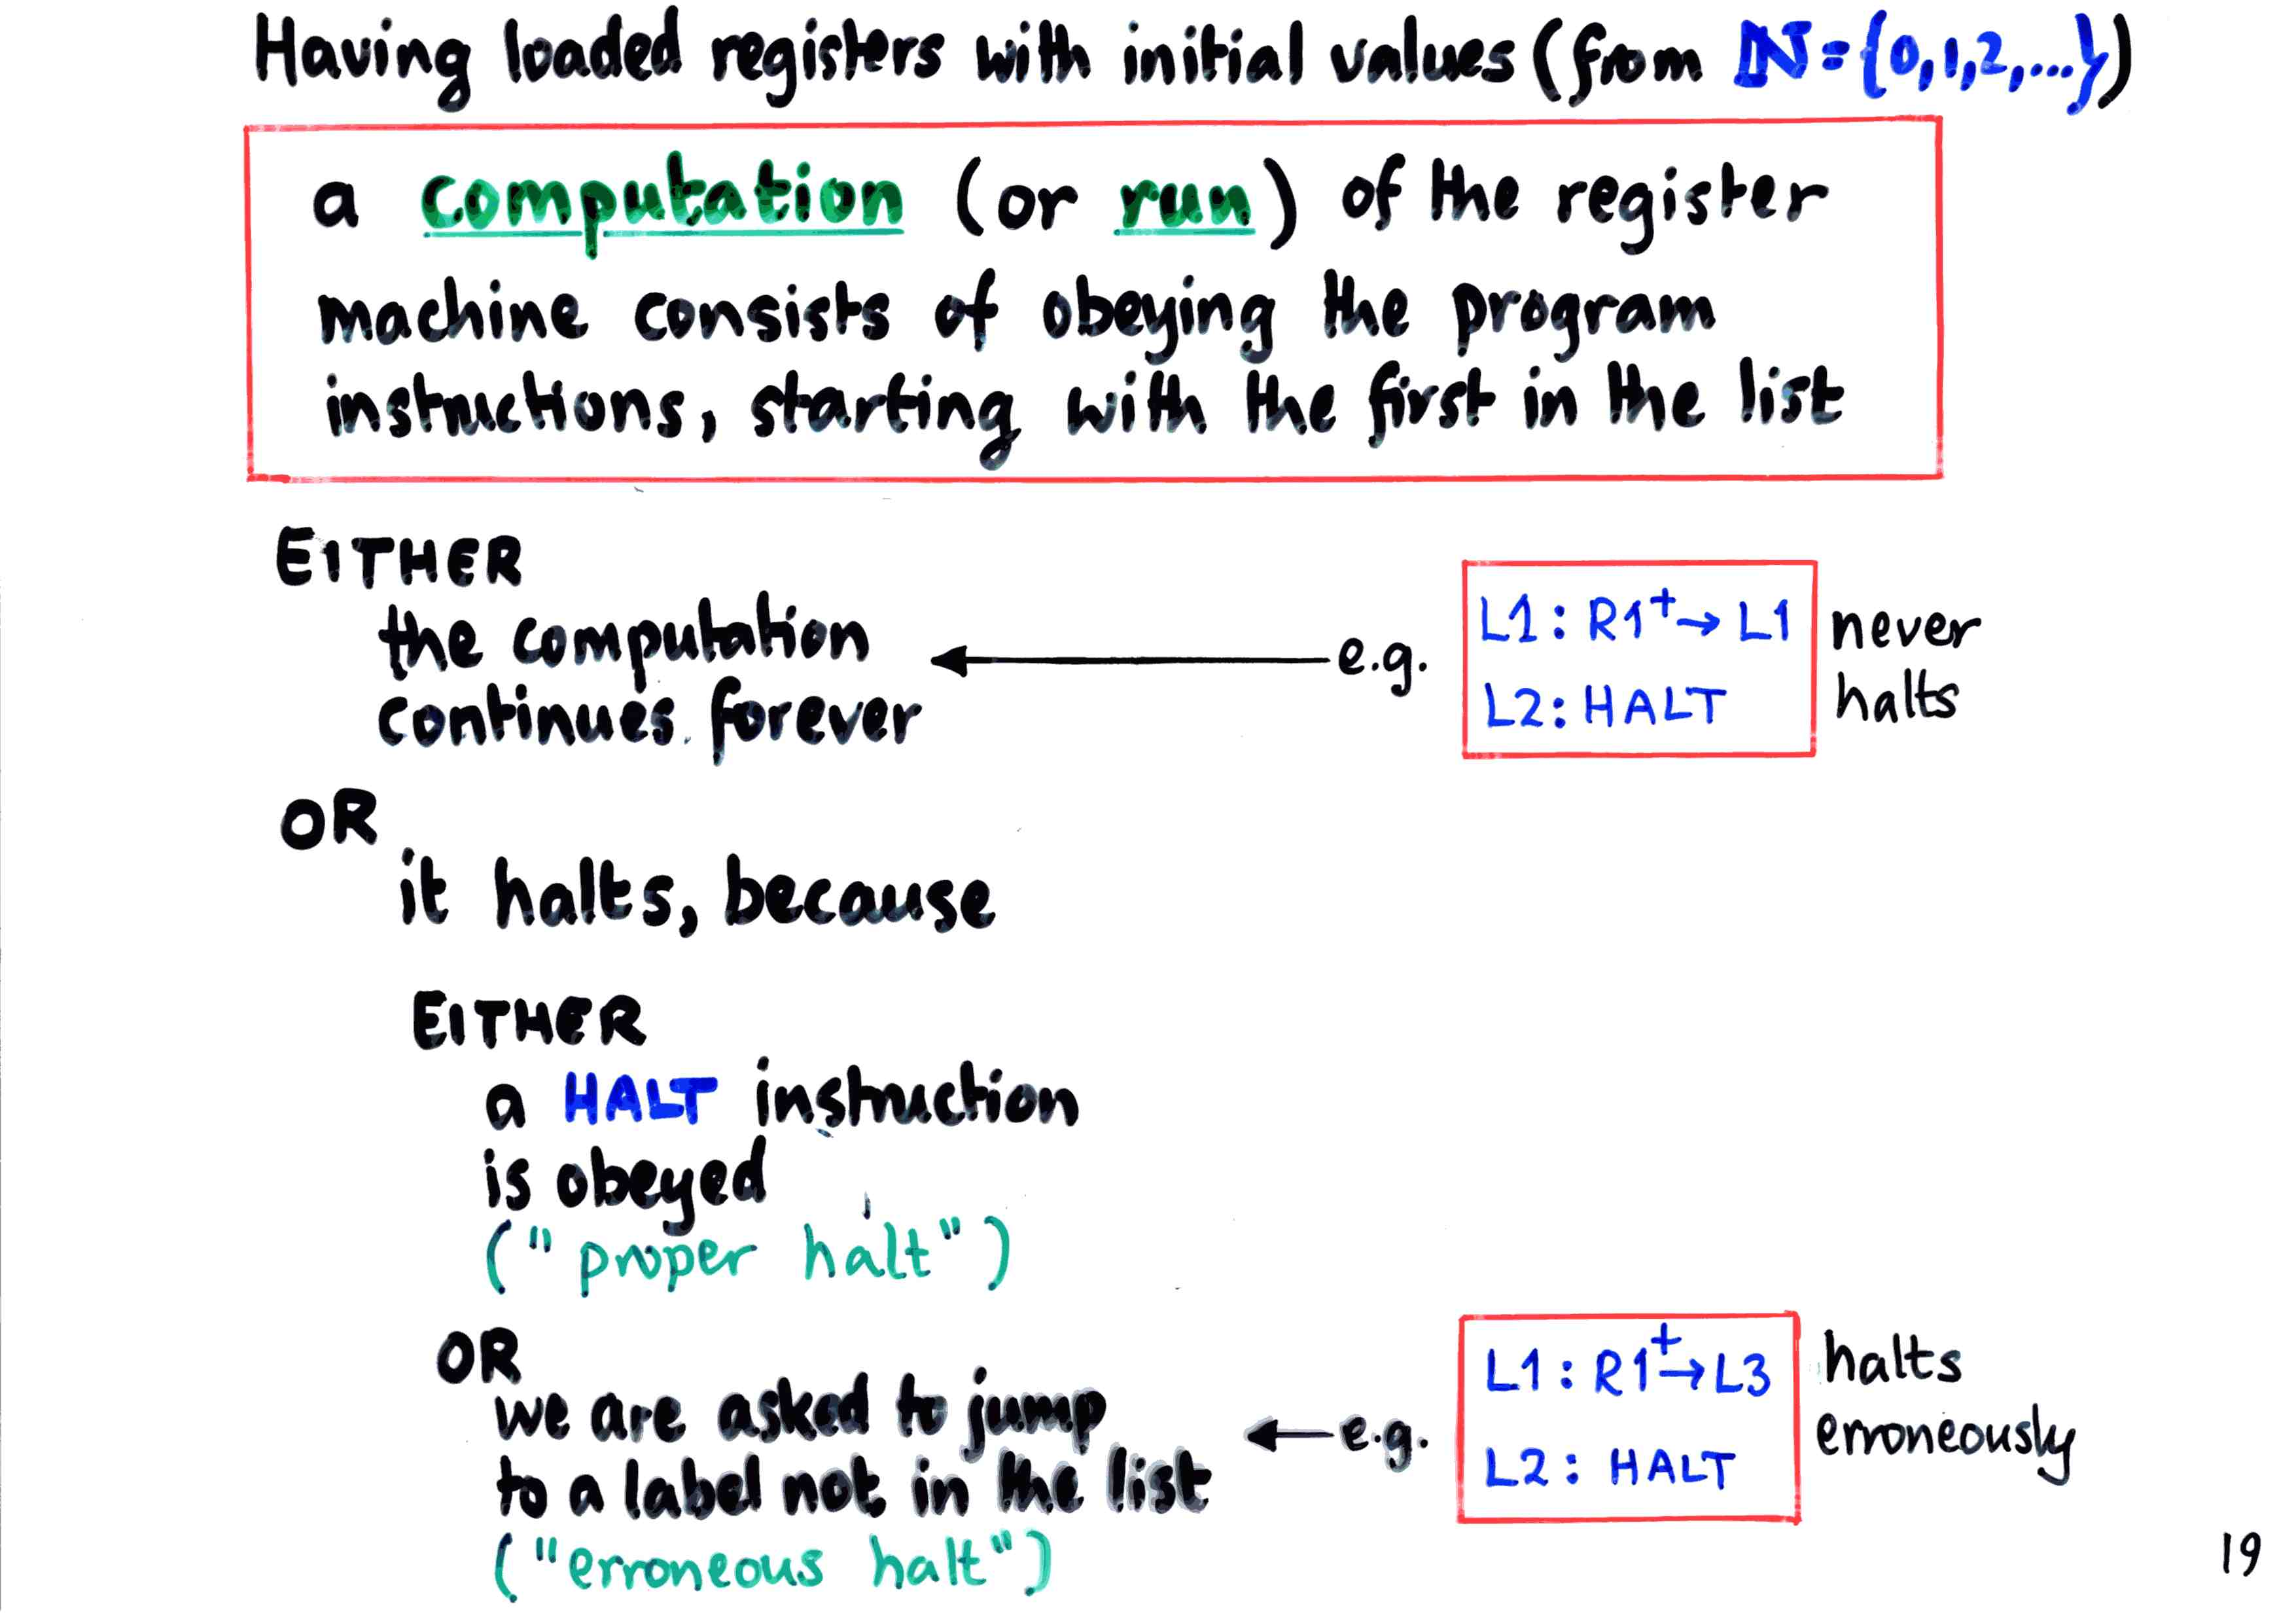 Having loaded registers with initial values (from ℕ={0,1,2,...})
a computation (or run) of the register
machine consists of obeying the program
instructions, starting with the first in the list
EITHER
the computation
continues forever
e.g.
L1: R1⁺→ L1
L2: HALT
never
halts
OR
it halts, because
EITHER
a HALT instruction
is obeyed
("proper halt")
OR
we are asked to jump
to a label not in the list
("erroneous halt")
e.g.
L1: R1⁺→ L3
L2: HALT
halts
erroneously
19